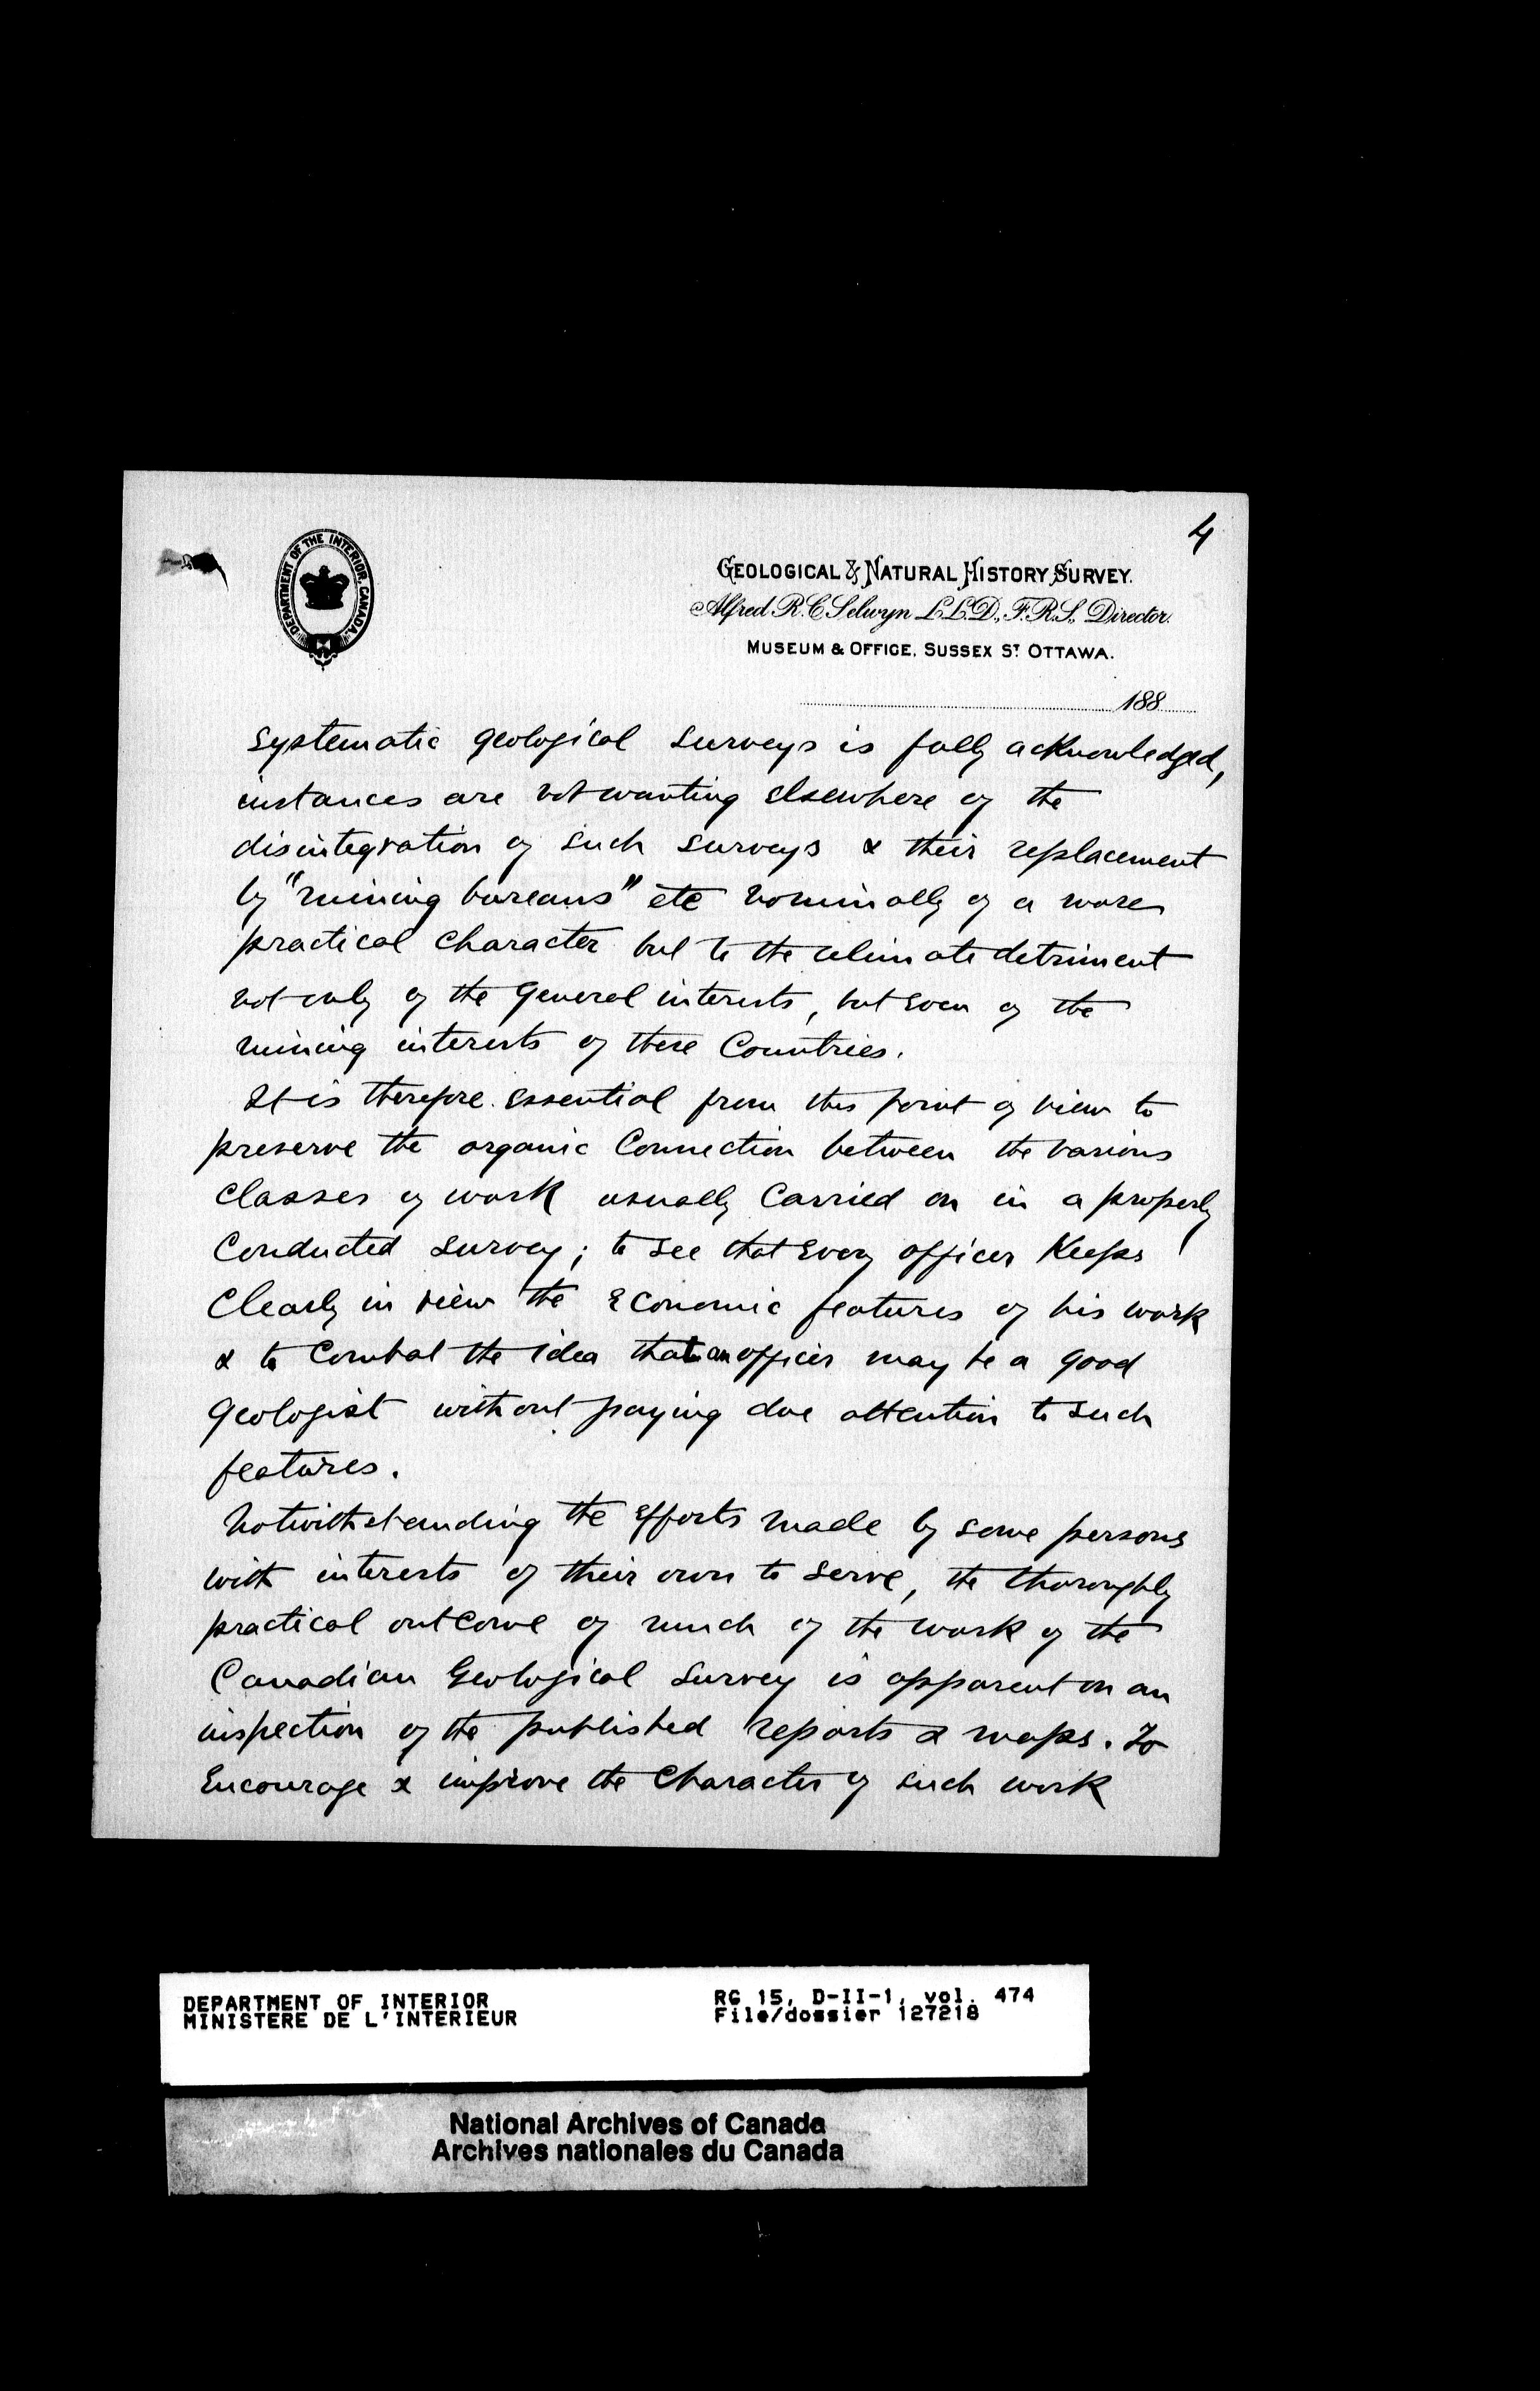 4
DEPARTMENT OF THE INTERIOR, CANADA.
GEOLOGICAL & NATURAL HISTORY SURVEY.
Alfred R. C. Selwyn L.L.D., F.R.S., Director.
MUSEUM & OFFICE, SUSSEX ST OTTAWA.
188
systematic geological surveys is fully acknowledged,
instances are not wanting elsewhere of the
disintegration of such surveys & their replacement
by "mining bureaus" etc nominally of a more
practical character but to the ultimate detriment
not only of the general interests, but even of the
mining interests of these Countries.
It is therefore essential from this point of view to
preserve the organic Connection between the various
classes of work usually Carried on in a properly
Conducted survey; to see that every officer Keeps
Clearly in view the Economic features of his work
& to Combat the idea that an officer may be a good
geologist without paying due attention to such
features.
Notwithstanding the efforts made by some persons
with interests of their own to serve, the thoroughly
practical outcome of much of the work of the
Canadian Geological Survey is apparent on an
inspection of the published reports & maps. To
Encourage & improve the Character of such work
DEPARTMENT OF INTERIOR
MINISTERE DE L'INTERIEUR
RG 15, D-II-1, vol. 474
File/dossier 127218
National Archives of Canada
Archives nationales du Canada